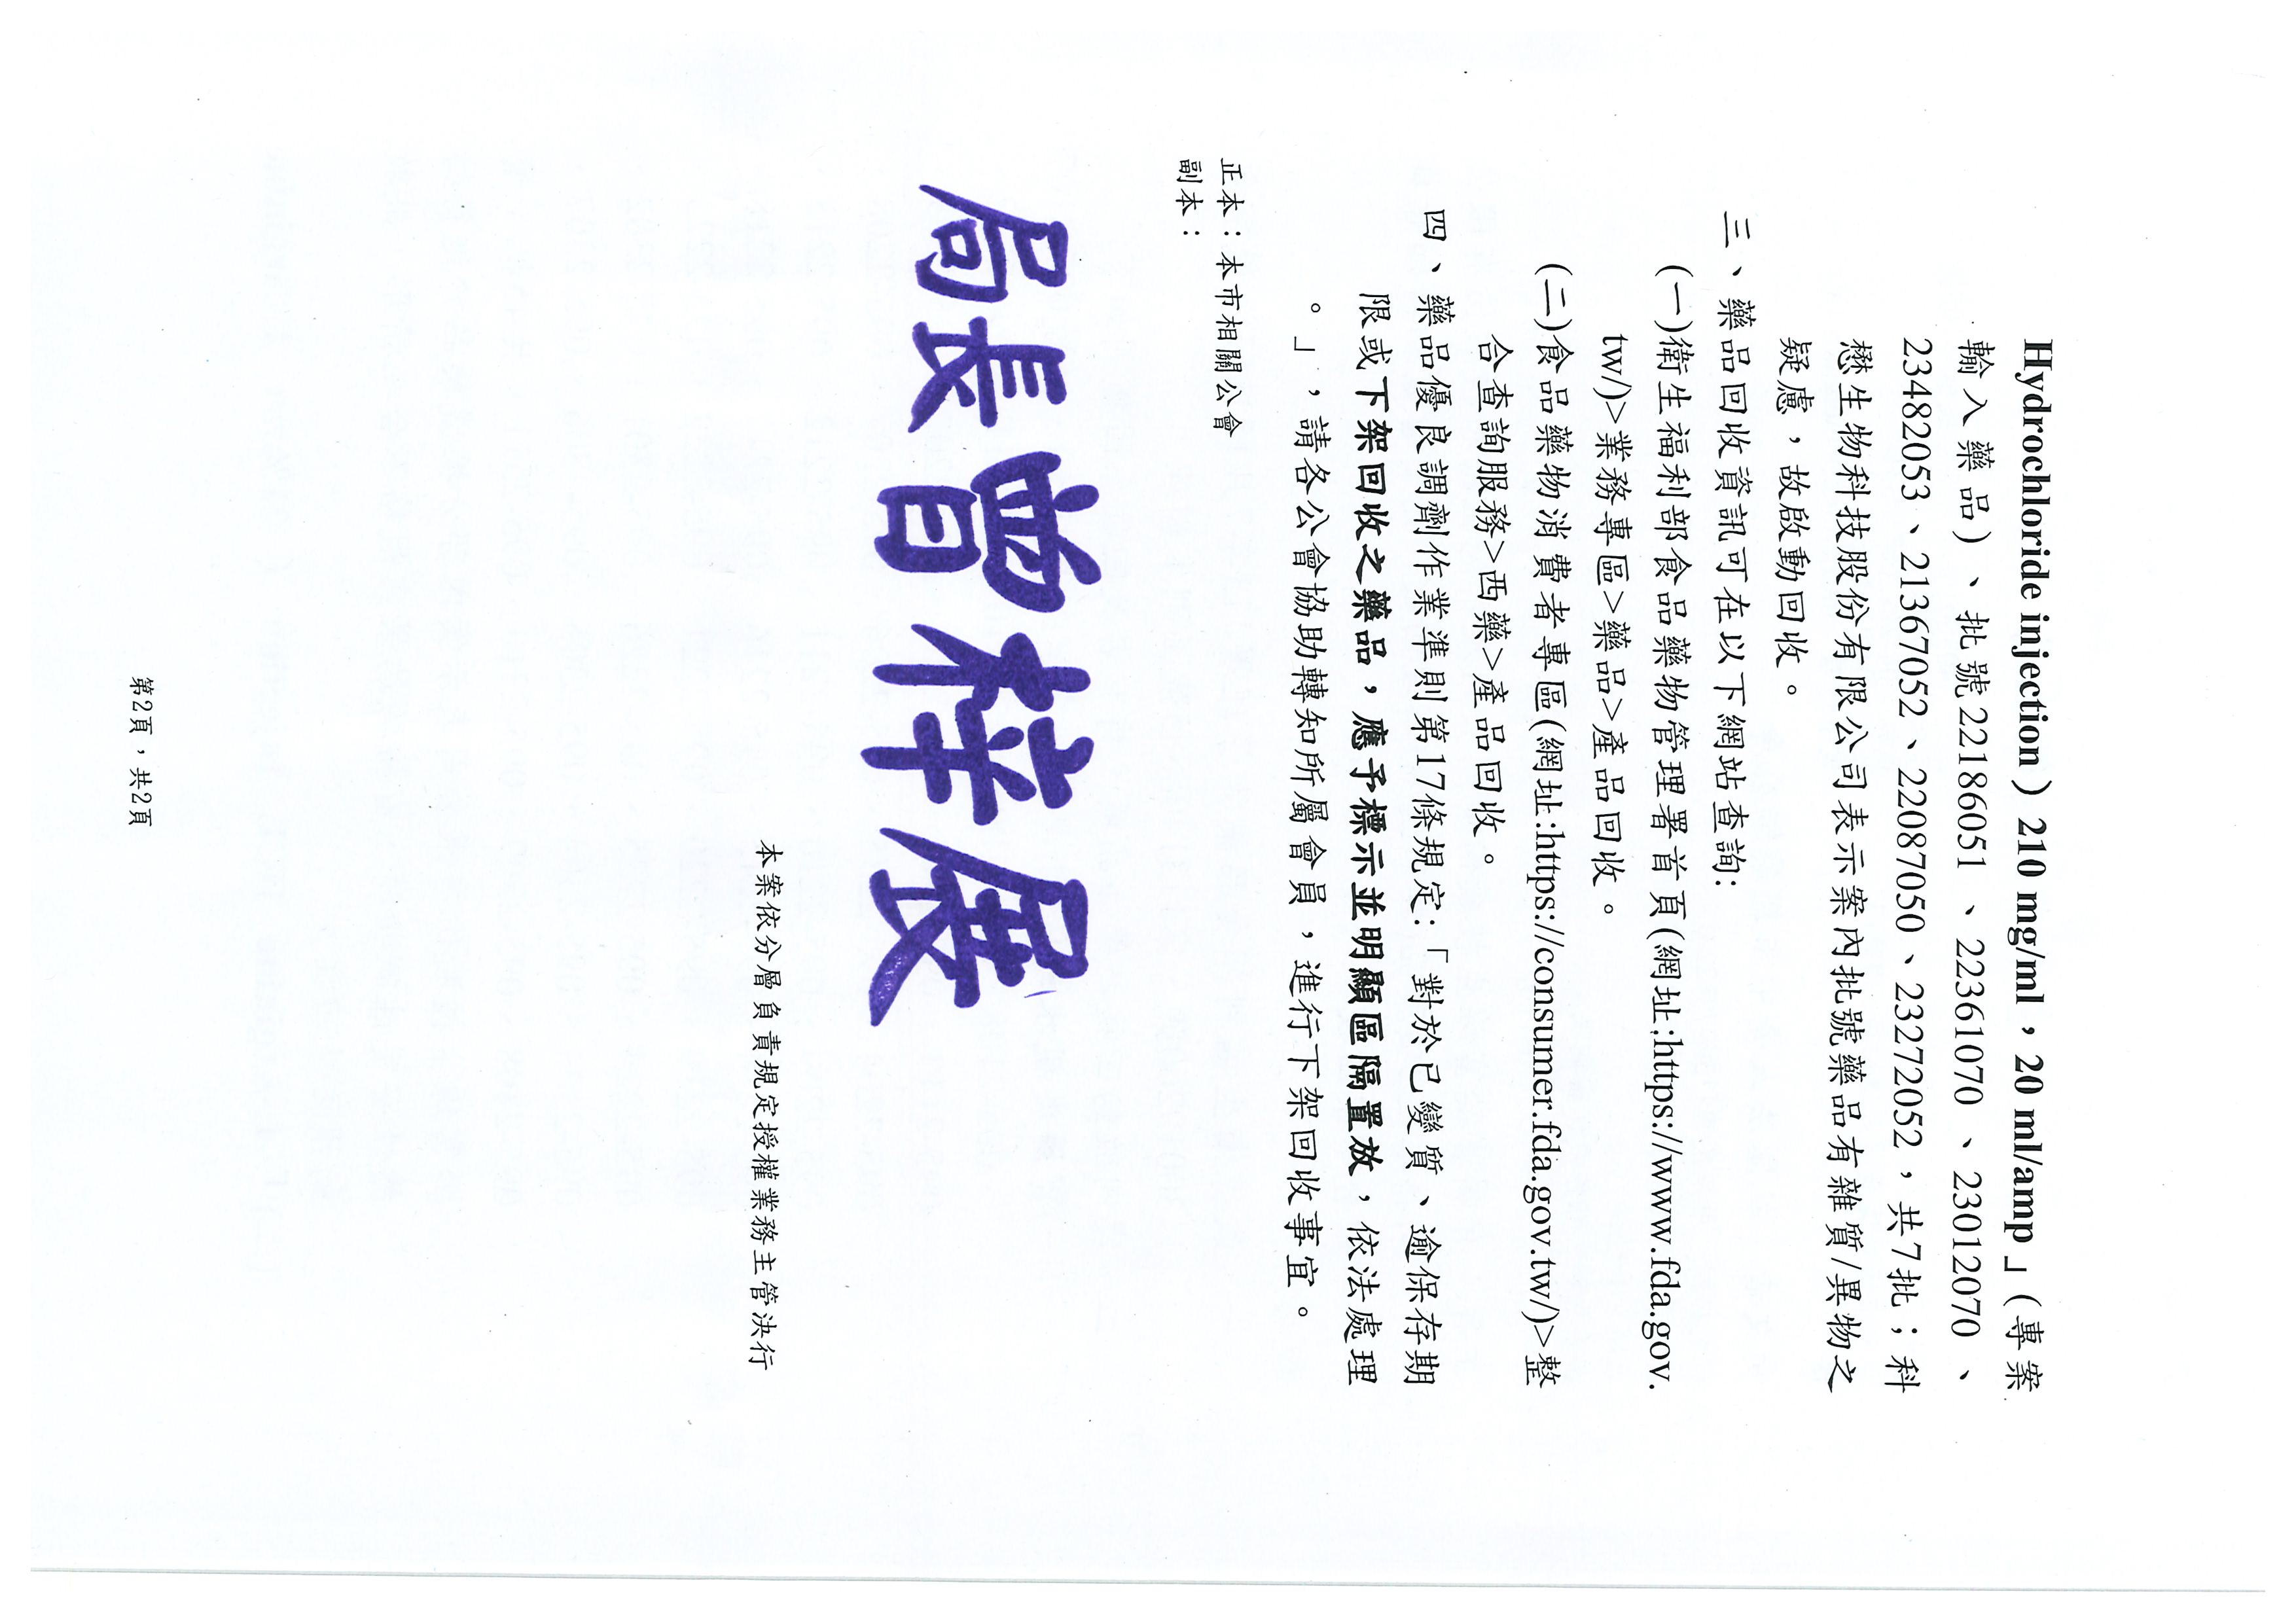 Hydrochloride injection）210 mg/ml，20 ml/amp」(專案
輸入藥品)、批號22186051、22361070、23012070、
23482053、21367052、22087050、23272052，共7批；科
懋生物科技股份有限公司表示案內批號藥品有雜質/異物之
疑慮，故啟動回收。
三、藥品回收資訊可在以下網站查詢:
(一)衛生福利部食品藥物管理署首頁(網址:https://www.fda.gov.
tw/)>業務專區>藥品>產品回收。
(二)食品藥物消費者專區(網址:https://consumer.fda.gov.tw/)>整
合查詢服務>西藥>產品回收。
四、藥品優良調劑作業準則第17條規定:「對於已變質、逾保存期
限或下架回收之藥品，應予標示並明顯區隔置放，依法處理
。」，請各公會協助轉知所屬會員，進行下架回收事宜。
正本：本市相關公會
副本：
局長曾梓展
本案依分層負責規定授權業務主管決行
第2頁，共2頁